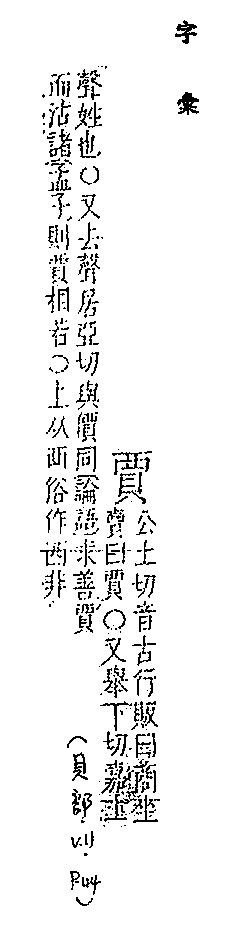 字彙
賈
公土切音古行販曰商坐
賣曰賈〇又舉下切嘉上
聲姓也〇又去聲居亞切與價同論語求善賈
而沽諸孟子則賈相若〇上从襾俗作西非
(貝部.V.11.P.44)